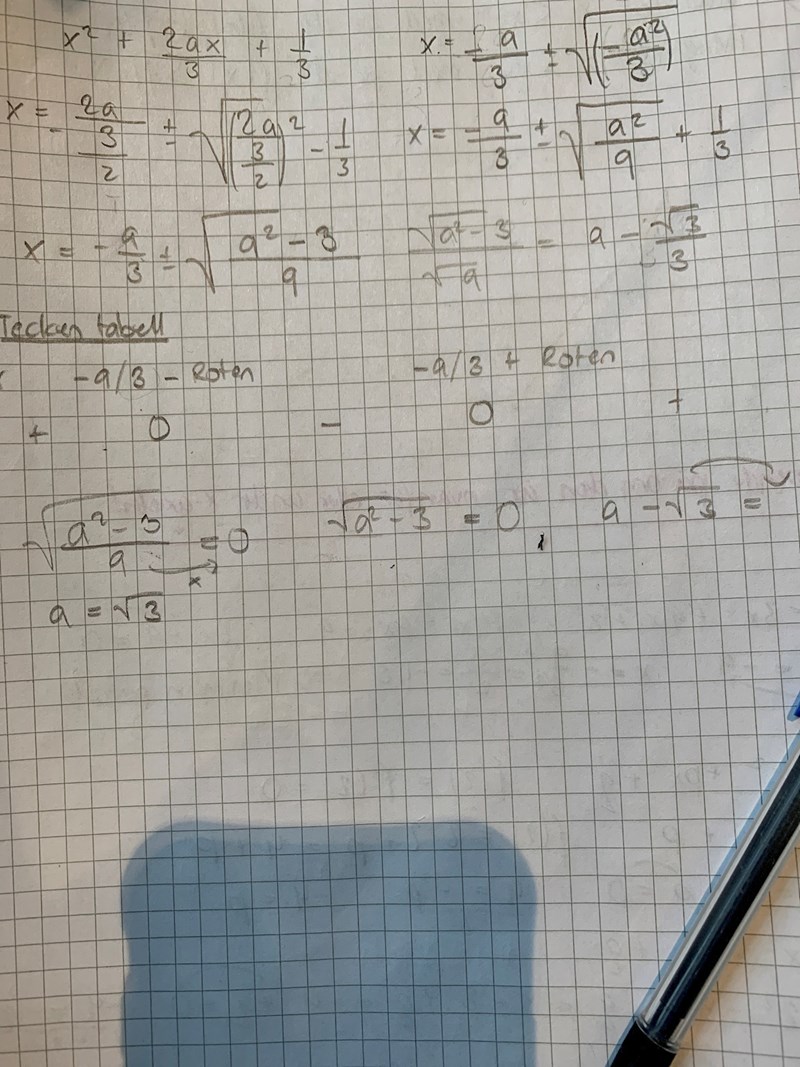 x² + 2ax/3 + 1/3
x = -a/3 ± √(-a²/3)
x = - 2a/3/2 ± √(2a/3/2)² - 1/3
x = -a/3 ± √a²/9 + 1/3
x = -a/3 ± √a² - 3/9
√a² - 3/√9 = a - √3/3
Tecken tabell
-a/3 - Roten
-a/3 + Roten
+ 0 - 0 +
√a² - 3/9 = 0
√a² - 3 = 0,
a - √3 =
a = √3